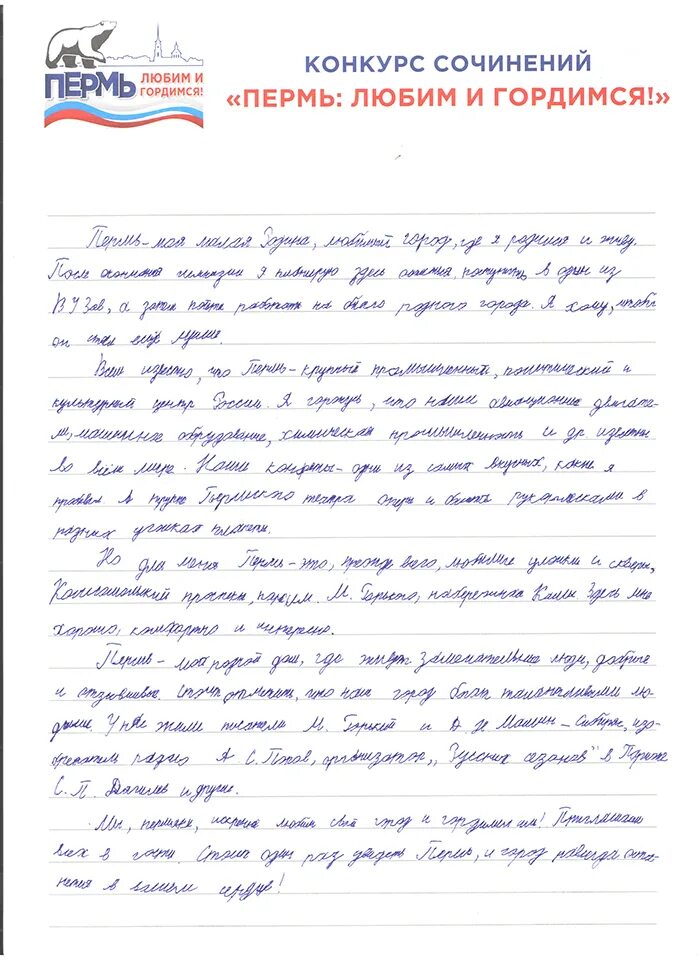 ПЕРМЬ ЛЮБИМ И ГОРДИМСЯ!
КОНКУРС СОЧИНЕНИЙ
«ПЕРМЬ: ЛЮБИМ И ГОРДИМСЯ!»
Пермь – моя малая Родина, любимый город, где я родился и живу.
После окончания гимназии я планирую здесь остаться, поступить в один из
ВУЗов, а затем пойти работать на благо родного города. Я хочу, чтобы
он стал ещё лучше.
Всем известно, что Пермь – крупный промышленный, политический и
культурный центр России. Я горжусь, что наши авиационные двигате-
ли, машинное оборудование, химическая промышленность и др известны
во всём мире. Наши конфеты – одни из самых вкусных, какие я
пробовал. А труппе Пермского театра оперы и балета рукоплескали в
разных уголках планеты.
Но для меня Пермь – это, прежде всего, любимые улочки и скверы,
Комсомольский проспект, парк им. М. Горького, набережная Камы. Здесь мне
хорошо, комфортно и интересно.
Пермь – мой родной дом, где живут замечательные люди, добрые
и отзывчивые. Стоит отметить, что наш город богат талантливыми лю-
дьми. У нас жили писатели М. Горький и Д. Н. Мамин – Сибиряк, изо-
бретатель радио А С. Попов, организатор „Русских сезонов" в Париже
С. П. Дягилев и другие.
Мы, пермяки, искренне любим свой город и гордимся им! Приглашаем
всех в гости. Стоит один раз увидеть Пермь, и город навсегда оста-
нется в вашем сердце!